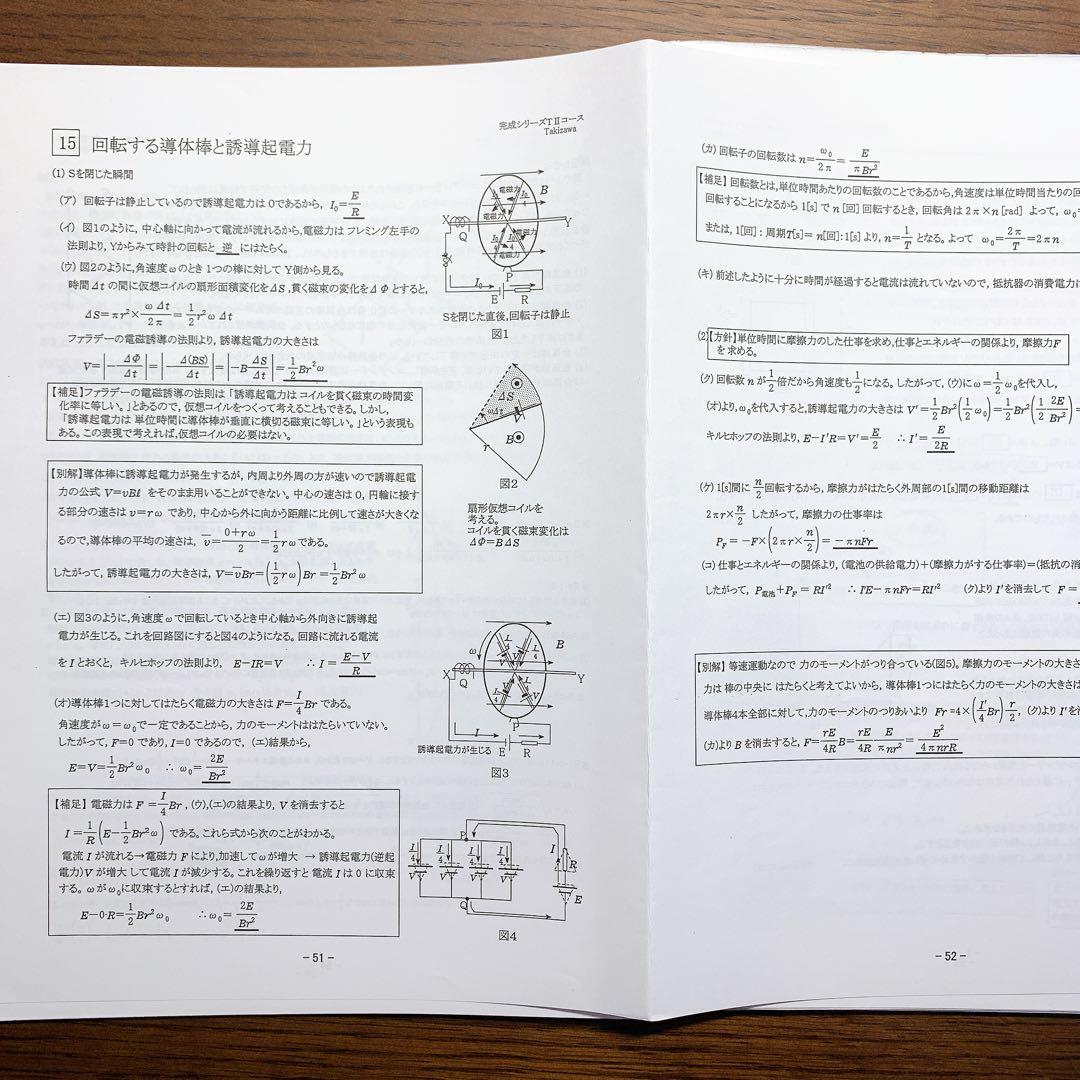 完成シリーズTⅡコース
Takizawa
15 回転する導体棒と誘導起電力
(1) Sを閉じた瞬間
(ア) 回転子は静止しているので誘導起電力は0であるから, I₀=E/R
(イ) 図1のように, 中心軸に向かって電流が流れるから, 電磁力は フレミング左手の
法則より, Yからみて時計の回転と 逆 にはたらく。
(ウ) 図2のように, 角速度ωのとき 1つの棒に対して Y側から見る。
時間Δtの間に仮想コイルの扇形面積変化をΔS, 貫く磁束の変化をΔΦとすると,
ΔS=πr²×ωΔt/2π=1/2 r²ωΔt
ファラデーの電磁誘導の法則より, 誘導起電力の大きさは
V=|-ΔΦ/Δt|=|-Δ(BS)/Δt|=|-BΔS/Δt|=1/2 Br²ω
【補足】ファラデーの電磁誘導の法則は「誘導起電力は コイルを貫く磁束の時間変
化率に等しい。」とあるので, 仮想コイルをつくって考えることもできる。しかし,
「誘導起電力は 単位時間に導体棒が垂直に横切る磁束に等しい。」という表現も
ある。この表現で考えれば, 仮想コイルの必要はない。
【別解】導体棒に誘導起電力が発生するが, 内周より外周の方が速いので誘導起電
力の公式 V=vBℓ をそのまま用いることができない。中心の速さは0, 円輪に接す
る部分の速さは v=rω であり, 中心から外に向かう距離に比例して速さが大きくな
るので, 導体棒の平均の速さは, v̄=(0+rω)/2=1/2 rωである。
したがって, 誘導起電力の大きさは, V=v̄Br=(1/2 rω)Br=1/2 Br²ω
(エ) 図3のように, 角速度ωで回転しているとき中心軸から外向きに誘導起
電力が生じる。これを回路図にすると図4のようになる。回路に流れる電流
をIとおくと, キルヒホッフの法則より, E-IR=V ∴I=(E-V)/R
(オ)導体棒1つに対してはたらく電磁力の大きさは F=I/4 Br である。
角速度がω=ω₀で一定であることから, 力のモーメントははたらいていない。
したがって, F=0 であり, I=0であるので, (エ)結果から,
E=V=1/2 Br²ω₀ ∴ω₀=2E/Br²
【補足】 電磁力は F=I/4 Br, (ウ),(エ)の結果より, Vを消去すると
I=1/R(E-1/2 Br²ω) である。これら式から次のことがわかる。
電流Iが流れる→電磁力Fにより, 加速してωが増大 → 誘導起電力(逆起
電力)Vが増大 して電流Iが減少する。これを繰り返すと 電流Iは0に収束
する。ωがω₀に収束するとすれば, (エ)の結果より,
E-0·R=1/2 Br²ω₀ ∴ω₀=2E/Br²
電磁力 I₀ B
電磁力
I₀/4 I₀/4
電磁力
X Q Y
S P
I₀
E R
Sを閉じた直後, 回転子は静止
図1
ΔS
ωΔt
r B
図2
扇形仮想コイルを
考える。
コイルを貫く磁束変化は
ΔΦ=BΔS
ω I/4 I/4 B
X Q Y
I P
E R
誘導起電力が生じる
図3
P
I/4 I/4 I/4 I/4 I R
V V V V
E
Q
図4
-51-
(カ) 回転子の回転数は n=ω₀/2π=E/πBr²
【補足】 回転数とは, 単位時間あたりの回転数のことであるから, 角速度は単位時間当たりの回
回転することになるから 1[s]で n[回]回転するとき, 回転角は2π×n[rad] よって, ω₀=
または, 1[回]：周期T[s]=n[回]:1[s]より, n=1/T となる。よって ω₀=2π/T=2πn
(キ) 前述したように十分に時間が経過すると電流は流れていないので, 抵抗器の消費電力は
(2)【方針】単位時間に摩擦力のした仕事を求め, 仕事とエネルギーの関係より, 摩擦力F
を求める。
(ク) 回転数nが1/2倍だから角速度も1/2になる。したがって, (ウ)にω=1/2 ω₀を代入し,
(オ)より, ω₀を代入すると, 誘導起電力の大きさは V'=1/2 Br²(1/2 ω₀)=1/2 Br²(1/2 2E/Br²)=
キルヒホッフの法則より, E-I'R=V'=E/2 ∴I'=E/2R
(ケ) 1[s]間に n/2回転するから, 摩擦力がはたらく外周部の1[s]間の移動距離は
2πr×n/2 したがって, 摩擦力の仕事率は
P_F=-F×(2πr×n/2)=-πnFr
(コ) 仕事とエネルギーの関係より, (電池の供給電力)+(摩擦力がする仕事率)=(抵抗の消
したがって, P電池+P_F=RI'² ∴I'E-πnFr=RI'² (ク)より I'を消去して F=
【別解】 等速運動なので 力のモーメントがつり合っている(図5)。摩擦力のモーメントの大きさ
力は 棒の中央に はたらくと考えてよいから, 導体棒1つにはたらく力のモーメントの大きさは
導体棒4本全部に対して, 力のモーメントのつりあいより Fr=4×(I'/4 Br)·r/2, (ク)より I'を消
(カ)より Bを消去すると, F=rE/4R B=rE/4R E/πnr²=E²/4πnrR
-52-